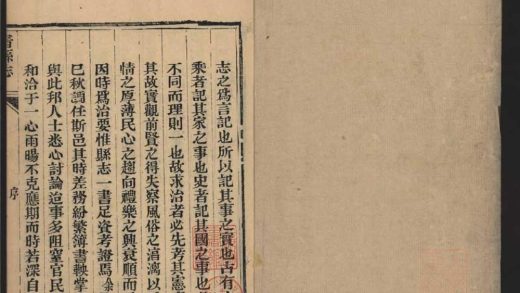 志之爲言記也所以記其事之實也古有
乘者記其家之事也史者記其國之事也
不同而理則一也故求治者必先考其憲
其故實觀前賢之得失察風俗之淳漓以
情之厚薄民心之趨向禮樂之興衰順而
因時爲治要惟縣志一書足資考證焉余
巳秋調任斯邑其時差務紛繁簿書鞅掌
與此邦人士悉心討論迨事多阻窒官民
和洽于一心雨暘不克應期而時若深自
縣志
序